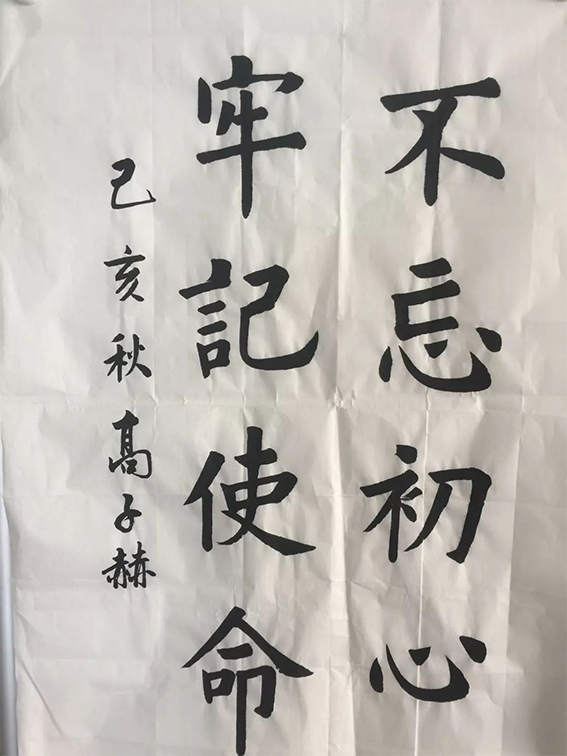 不忘初心
牢記使命
己亥秋髙子赫